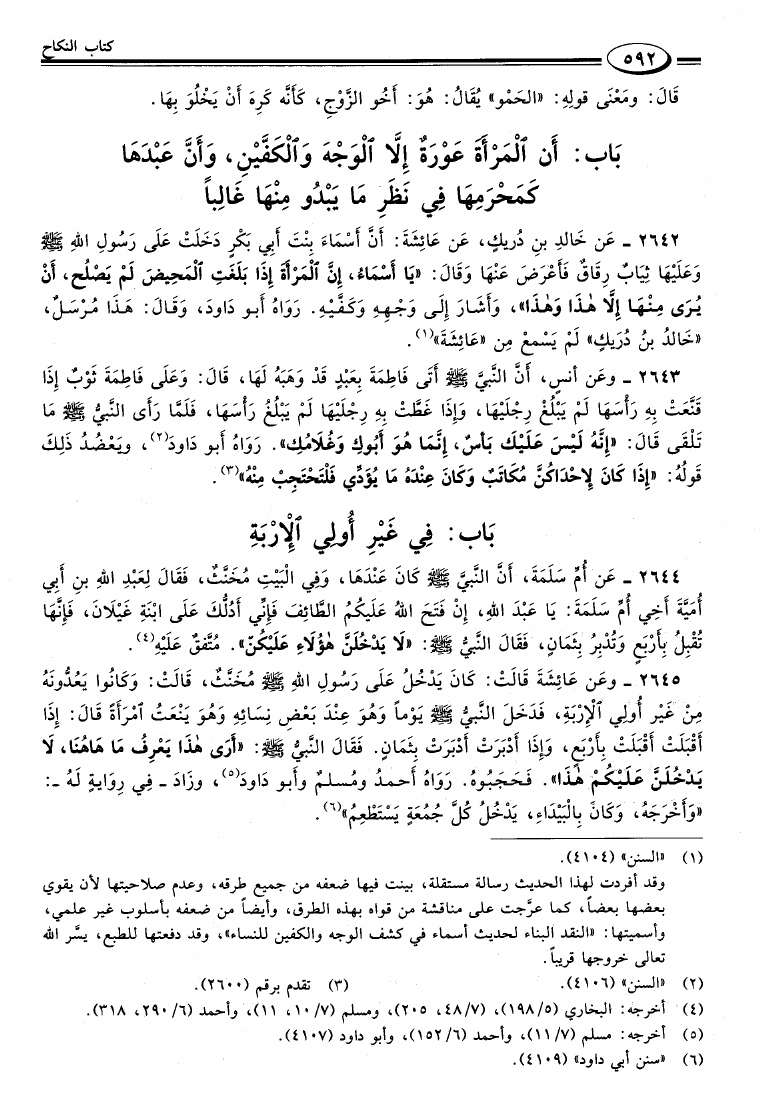 ٥٩٢
كتاب النكاح
قَالَ: ومَعْنَى قولِهِ: «الحَمْو» يُقَالُ: هُوَ: أَخُو الزَّوْجِ، كَأَنَّه كَرِهَ أَنْ يَخْلُوَ بِهَا.
بَاب: أَن ٱلْمَرْأَةَ عَوْرَةٌ إِلَّا ٱلْوَجْهَ وَٱلْكَفَّيْنِ، وَأَنَّ عَبْدَهَا
كَمَحْرَمِهَا فِي نَظَرِ مَا يَبْدُو مِنْهَا غَالِباً
٢٦٤٢ ـ عَن خالدِ بنِ دُريكٍ، عَن عَائِشَةَ: أَنَّ أَسْمَاءَ بِنْتَ أَبِي بَكْرٍ دَخَلَتْ عَلَى رَسُولِ اللهِ ﷺ
وَعَلَيْهَا ثِيَابٌ رِقَاقٌ فَأَعْرَضَ عَنْهَا وَقَالَ: «يَا أَسْمَاءُ، إِنَّ ٱلْمَرْأَةَ إِذَا بَلَغَتِ ٱلْمَحِيضَ لَمْ يَصْلُح، أَنْ
يُرَى مِنْهَا إِلَّا هٰذَا وَهٰذَا»، وَأَشَارَ إِلَى وَجْهِهِ وَكَفَّيْهِ. رَوَاهُ أَبو دَاودَ، وَقَالَ: هَذَا مُرْسَلٌ،
«خَالدُ بنُ دُرَيكٍ» لَمْ يَسْمعْ مِن «عَائِشَةَ»(١).
٢٦٤٣ ـ وعَن أنسٍ، أَنَّ النَّبِيَّ ﷺ أَتَى فَاطِمَةَ بِعَبْدٍ قَدْ وَهَبَهُ لَهَا، قَالَ: وَعَلَى فَاطِمَةَ ثَوْبٌ إِذَا
قَنَّعَتْ بِهِ رَأْسَهَا لَمْ يَبْلُغْ رِجْلَيْهَا، وَإِذَا غَطَّتْ بِهِ رِجْلَيْهَا لَمْ يَبْلُغْ رَأْسَهَا، فَلَمَّا رَأَى النَّبِيُّ ﷺ مَا
تَلْقَى قَالَ: «إِنَّهُ لَيْسَ عَلَيْكِ بَأْسٌ، إِنَّمَا هُوَ أَبُوكِ وَغُلَامُكِ». رَوَاهُ أَبو دَاودَ(٢)، ويَعْضُدُ ذَلِكَ
قَولُهُ: «إِذَا كَانَ لِإِحْدَاكُنَّ مُكَاتَبٌ وَكَانَ عِنْدَهُ مَا يُؤَدِّي فَلْتَحْتَجِبْ مِنْهُ»(٣).
بَاب: فِي غَيْرِ أُولِي ٱلْإِرْبَةِ
٢٦٤٤ ـ عَن أُمِّ سَلَمَةَ، أَنَّ النَّبِيَّ ﷺ كَانَ عَنْدَهَا، وَفِي الْبَيْتِ مُخَنَّثٌ، فَقَالَ لِعَبْدِ اللهِ بنِ أَبِي
أُمَيَّةَ أَخِي أُمِّ سَلَمَةَ: يَا عَبْدَ اللهِ، إِنْ فَتَحَ اللهُ عَلَيْكُمُ الطَّائِفَ فَإِنِّي أَدُلُّكَ عَلَى ابْنَةِ غَيْلَانَ، فَإِنَّهَا
تُقْبِلُ بِأَرْبَعٍ وَتُدْبِرُ بِثَمَانٍ، فَقَالَ النَّبِيُّ ﷺ: «لَا يَدْخُلَنَّ هٰؤُلَاءِ عَلَيْكُنَّ». مُتَّفقٌ عَلَيْهِ(٤).
٢٦٤٥ ـ وعَن عَائِشَةَ قَالَتْ: كَانَ يَدْخُلُ عَلَى رَسُولِ اللهِ ﷺ مُخَنَّثٌ، قَالَتْ: وَكَانُوا يَعُدُّونَهُ
مِنْ غَيْرِ أُولِي ٱلْإِرْبَةِ، فَدَخَلَ النَّبِيُّ ﷺ يَوْماً وَهُوَ عِنْدَ بَعْضِ نِسَائِهِ وَهُوَ يَنْعَتُ ٱمْرَأَةً قَالَ: إِذَا
أَقْبَلَتْ أَقْبَلَتْ بِأَرْبَعٍ، وَإِذَا أَدْبَرَتْ أَدْبَرَتْ بِثَمَانٍ. فَقَالَ النَّبِيُّ ﷺ: «أَرَى هٰذَا يَعْرِفُ مَا هَاهُنَا، لَا
يَدْخُلَنَّ عَلَيْكُمْ هٰذَا». فَحَجَبُوهُ. رَوَاهُ أَحمدُ ومُسلمٌ وأَبو دَاودَ(٥)، وزَادَ ـ فِي رِوَايةٍ لَهُ ـ:
«وَأَخْرَجَهُ، وَكَانَ بِالْبَيْدَاءِ، يَدْخُلُ كُلَّ جُمُعَةٍ يَسْتَطْعِمُ»(٦).
(١) «السنن» (٤١٠٤).
وقد أفردت لهذا الحديث رسالة مستقلة، بينت فيها ضعفه من جميع طرقه، وعدم صلاحيتها لأن يقوي
بعضها بعضاً، كما عرَّجت على مناقشة من قواه بهذه الطرق، وأيضاً من ضعفه بأسلوب غير علمي،
وأسميتها: «النقد البناء لحديث أسماء في كشف الوجه والكفين للنساء»، وقد دفعتها للطبع، يسَّر الله
تعالى خروجها قريباً.
(٢) «السنن» (٤١٠٦). (٣) تقدم برقم (٢٦٠٠).
(٤) أخرجه: البخاري (١٩٨/٥)، (٤٨/٧، ٢٠٥)، ومسلم (١٠/٧، ١١)، وأحمد (٢٩٠/٦، ٣١٨).
(٥) أخرجه: مسلم (١١/٧)، وأحمد (١٥٢/٦)، وأبو داود (٤١٠٧).
(٦) «سنن أبي داود» (٤١٠٩).